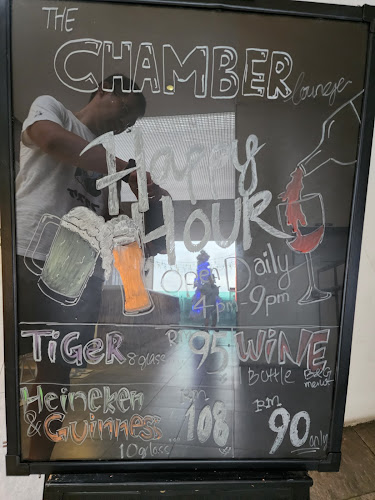 THE
CHAMBER
Lounge
Happy
HOUR
Open Daily
4pm-9pm
TIGER 8 glass RM 95
WINE
Bottle
Heineken
& Guinness
10 glass RM 108
RM 90 only